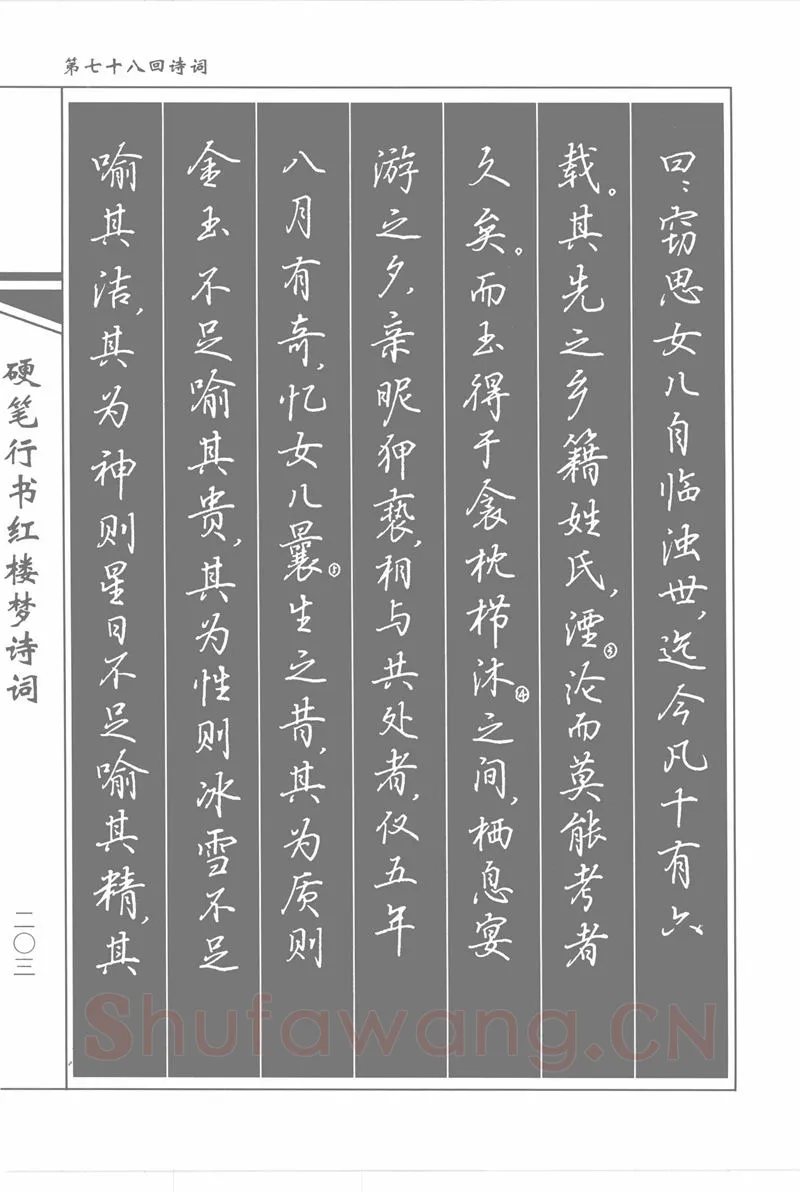 第七十八回诗词
曰：窃思女儿自临浊世，迄今凡十有六
载。其先之乡籍姓氏，湮③沦而莫能考者
久矣。而玉得于衾枕栉沐④之间，栖息宴
游之夕，亲昵狎亵，相与共处者，仅五年
八月有奇，忆女儿曩⑤生之昔，其为质则
金玉不足喻其贵，其为性则冰雪不足
喻其洁，其为神则星日不足喻其精，其
硬笔行书红楼梦诗词
二〇三
Shufawang.CN